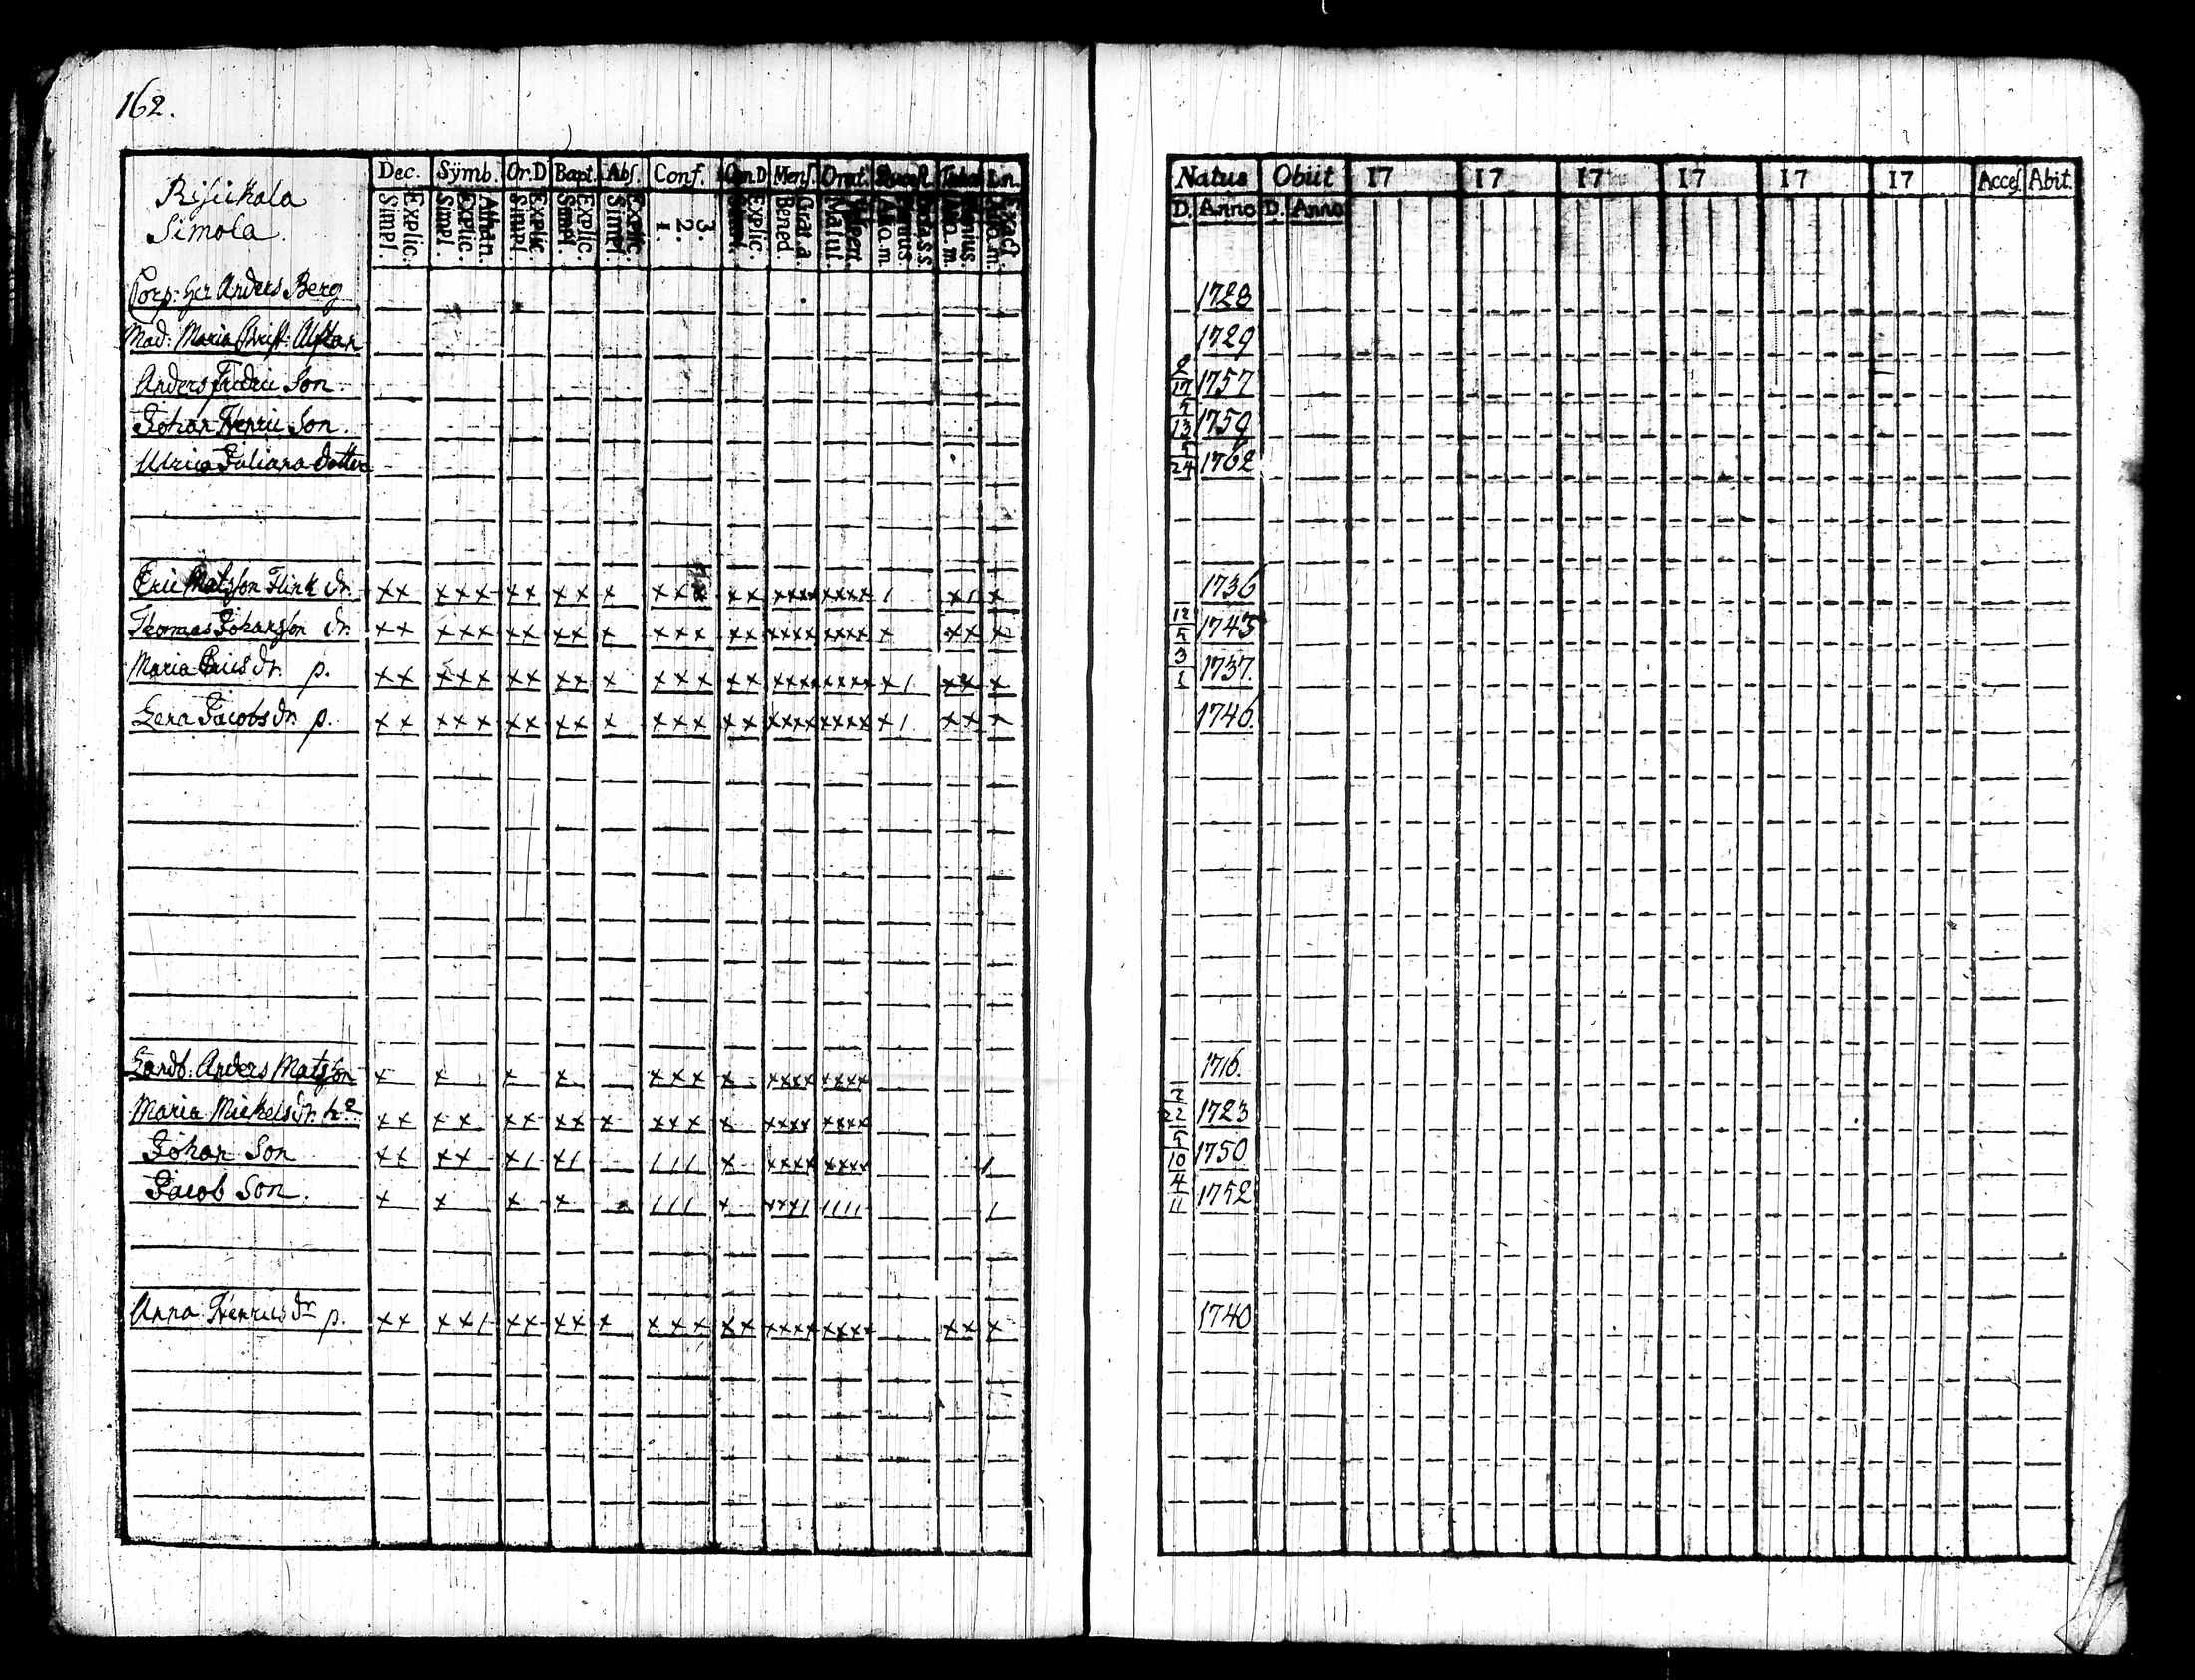 162.
Risikala
Simola.
Dec. Sÿmb. Or.D Bapt. Abs. Conf. Men.s Orat.
Explic. Simpl. Athan. Explic. Simpl. Explic. Simpl. Explic. Simpl. Explic. Simpl. 3. 2. 1. Explic. Grat. a. Bened. Matut.
Natus Obiit 17 17 17 17 17 17 Acces. Abit.
D. Anno D. Anno
Corp: Her Anders Berg 1728
Mad: Maria Christ: 1729
Anders Fredric Son. 2/17 1757
Johan Henric Son. 5/13 1759
Ulrica Juliana dotter 5/24 1762
Eric Matsson Flink dr. xx xxx xx xx x xxx xx xxxx xxxx 1 x1 x 1736
Thomas Johansson dr. xx xxx xx xx x xxx xx xxxx xxxx x xx x 12/5 1745
Maria Ericsdr. p. xx xxx xx xx x xxx xx xxxx xxxx x1 xx x 3/1 1737.
Lena Jacobsdr. p. xx xxx xx xx x xxx xx xxxx xxxx x1 xx x 1746.
Landb. Anders Matsson x x x x xxx x xxxx xxxx 1716.
Maria Mickelsdr. h. xx xx xx xx x xxx x xxxx xxxx 2/22 1723
Johan Son xx xx x1 x1 111 x xxxx xxxx 1 5/10 1750
Jacob Son. x x x x 111 x xxx1 1111 1 4/11 1752
Anna Henricsdr p. xx xx1 xx xx x xxx xx xxxx xxxx xx x 1740